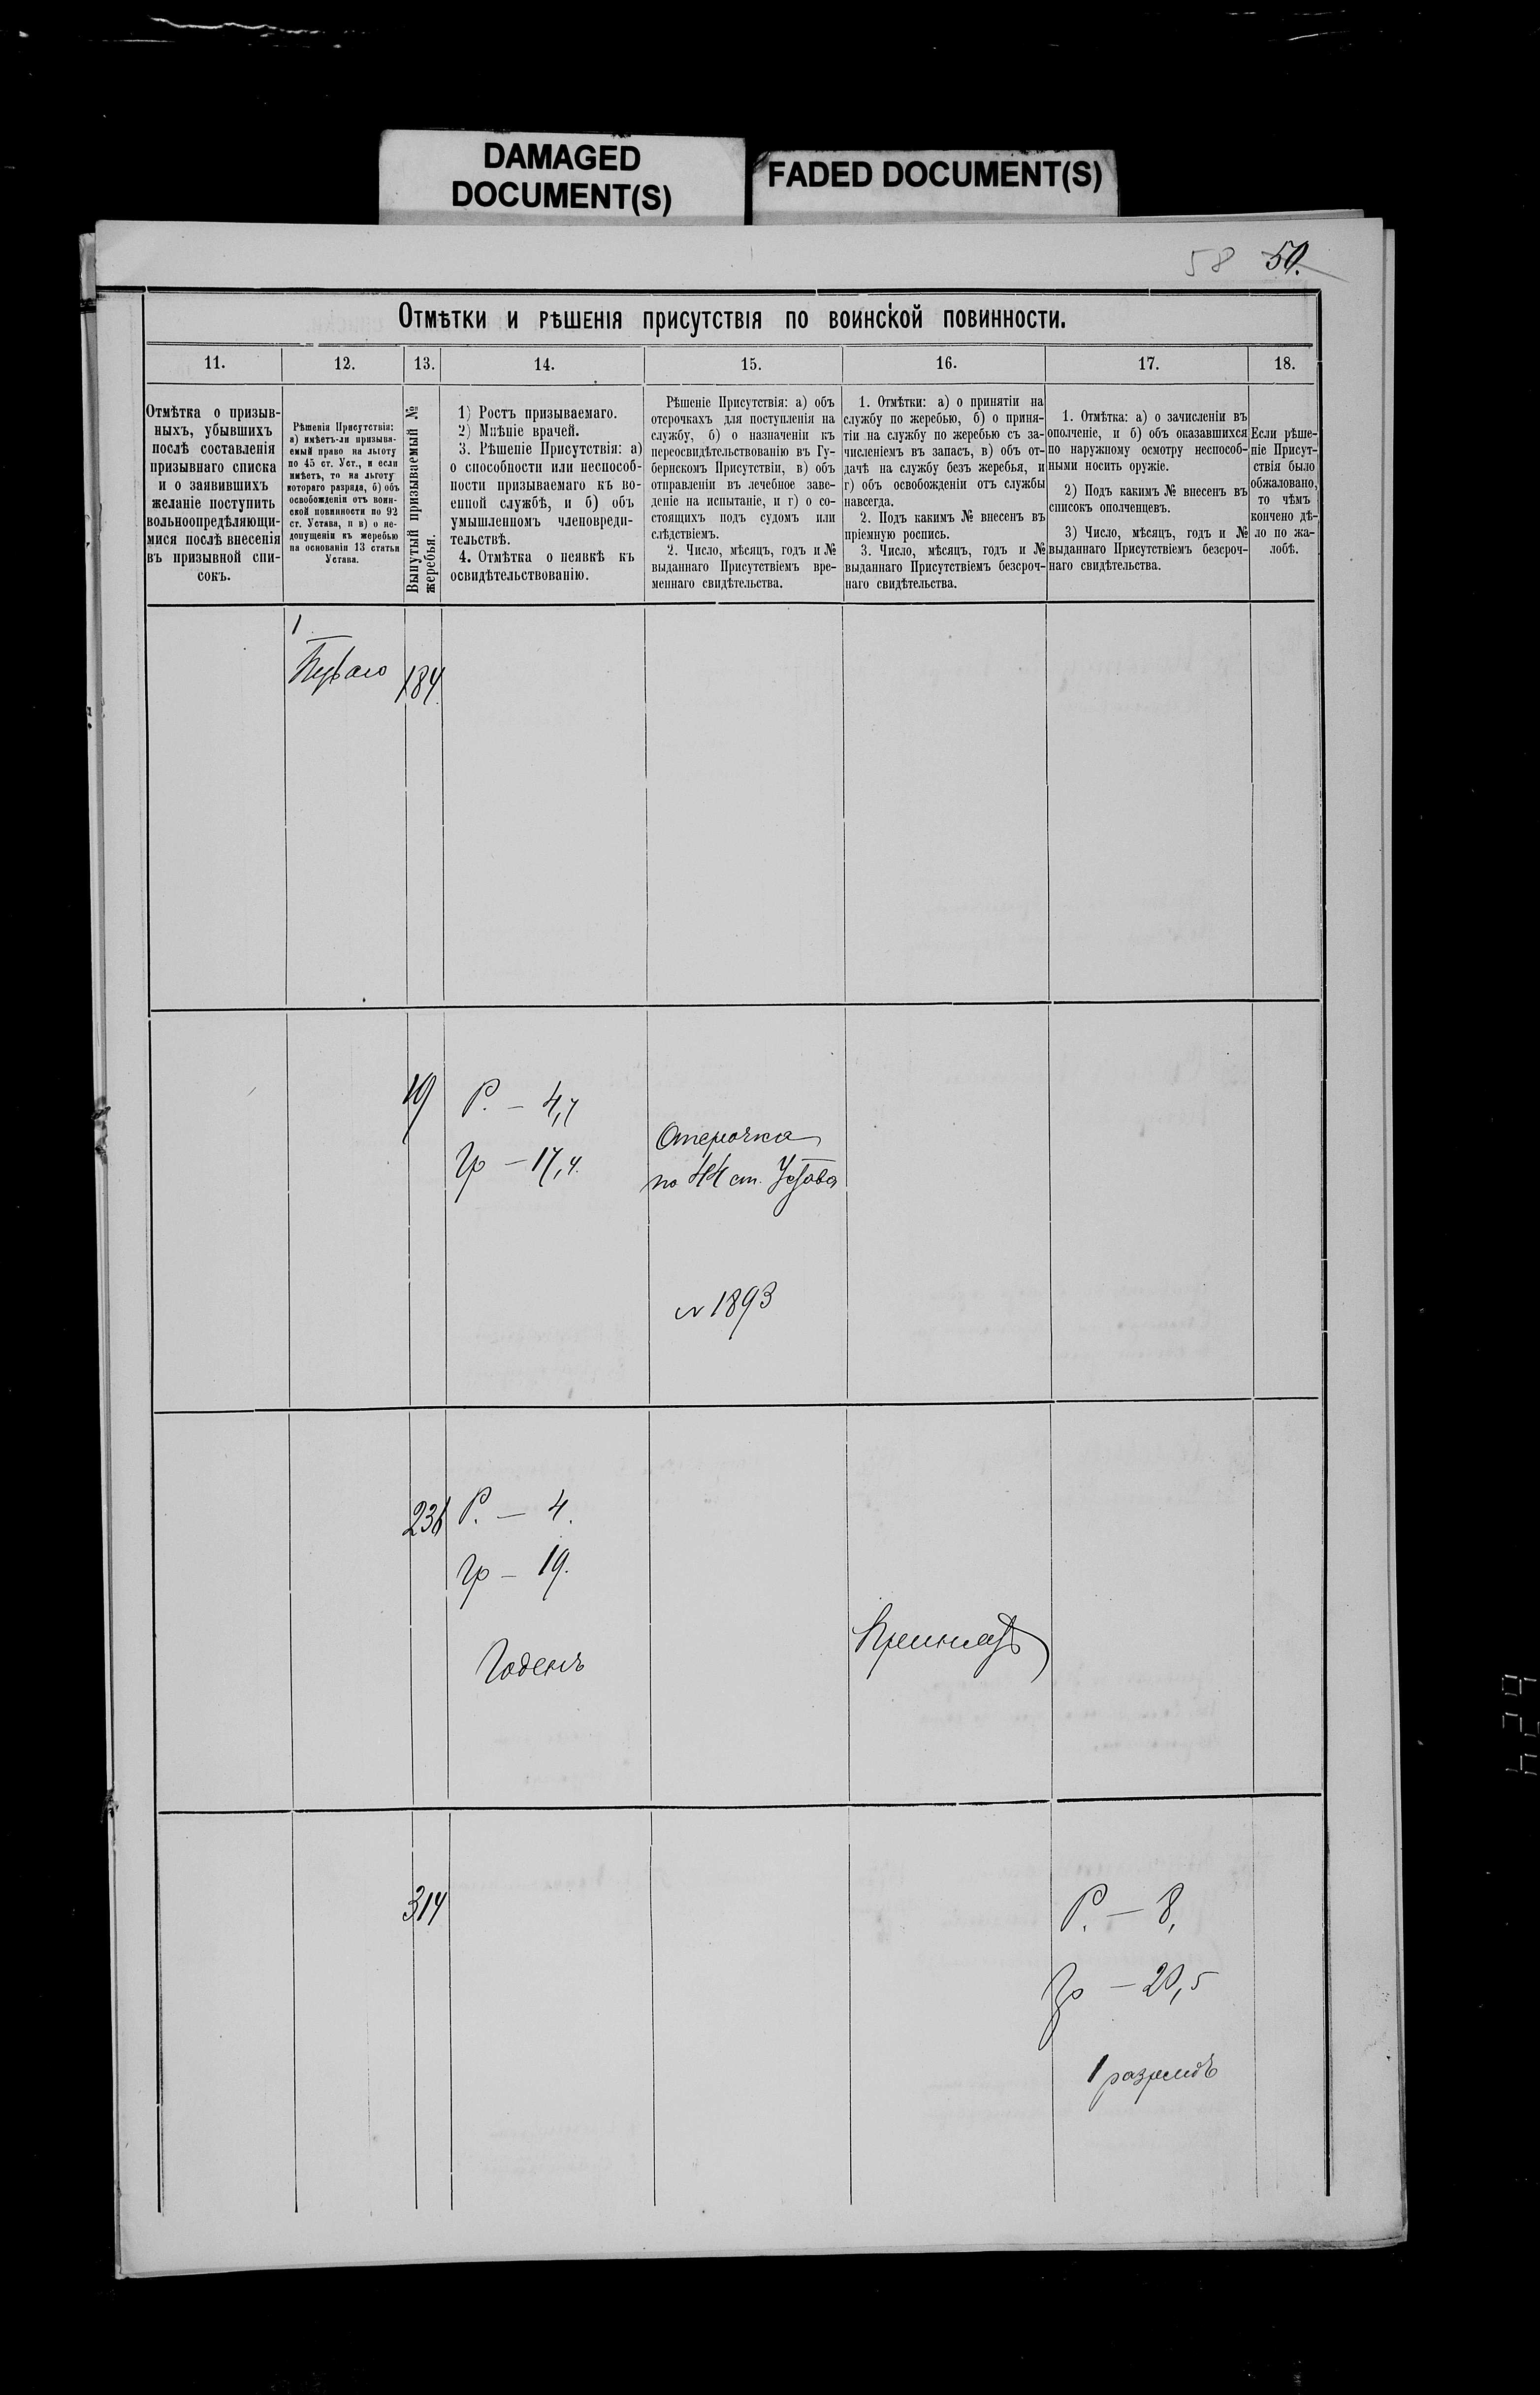 DAMAGED
DOCUMENT(S)
FADED DOCUMENT(S)
58 50.
Отмѣтки и рѣшенія присутствія по воинской повинности.
11. 12. 13. 14. 15. 16. 17. 18.
Отмѣтка о призыв-
ныхъ, убывшихъ
послѣ составленія
призывнаго списка
и о заявившихъ
желаніе поступить
вольноопредѣляющи-
мися послѣ внесенія
въ призывной спи-
сокъ.
Рѣшенія Присутствія:
а) имѣетъ-ли призыва-
емый право на льготу
по 45 ст. Уст., и если
имѣетъ, то на льготу
котораго разряда, б) объ
освобожденіи отъ воин-
ской повинности по 92
ст. Устава, и в) о не-
допущеніи къ жеребью
на основаніи 13 статьи
Устава.
Вынутый призываемый №
жеребья.
1) Ростъ призываемаго.
2) Мнѣніе врачей.
3. Рѣшеніе Присутствія: а)
о способности или неспособ-
ности призываемаго къ во-
енной службѣ, и б) объ
умышленномъ членовреди-
тельствѣ.
4. Отмѣтка о неявкѣ къ
освидѣтельствованію.
Рѣшеніе Присутствія: а) объ
отсрочкахъ для поступленія на
службу, б) о назначеніи къ
переосвидѣтельствованію въ Гу-
бернскомъ Присутствіи, в) объ
отправленіи въ лечебное заве-
деніе на испытаніе, и г) о со-
стоящихъ подъ судомъ или
слѣдствіемъ.
2. Число, мѣсяцъ, годъ и №
выданнаго Присутствіемъ вре-
меннаго свидѣтельства.
1. Отмѣтки: а) о принятіи на
службу по жеребью, б) о приня-
тіи на службу по жеребью съ за-
численіемъ въ запасъ, в) объ от-
дачѣ на службу безъ жеребья, и
г) объ освобожденіи отъ службы
навсегда.
2. Подъ какимъ № внесенъ въ
пріемную роспись.
3. Число, мѣсяцъ, годъ и №
выданнаго Присутствіемъ безсроч-
наго свидѣтельства.
1. Отмѣтка: а) о зачисленіи въ
ополченіе, и б) объ оказавшихся
по наружному осмотру неспособ-
ными носить оружіе.
2) Подъ какимъ № внесенъ въ
списокъ ополченцевъ.
3) Число, мѣсяцъ, годъ и №
выданнаго Присутствіемъ безсроч-
наго свидѣтельства.
Если рѣше-
ніе Присут-
ствія было
обжаловано,
то чѣмъ
кончено дѣ-
ло по жа-
лобѣ.
1
Перваго 184.
19 Р. — 4,7
Гр — 17,4.
Отсрочка
по 44 ст. Устава
№ 1893
236 Р. — 4.
Гр — 19.
Годенъ
Принятъ
314
Р. — 8,
Гр — 20,5
1 разрядъ